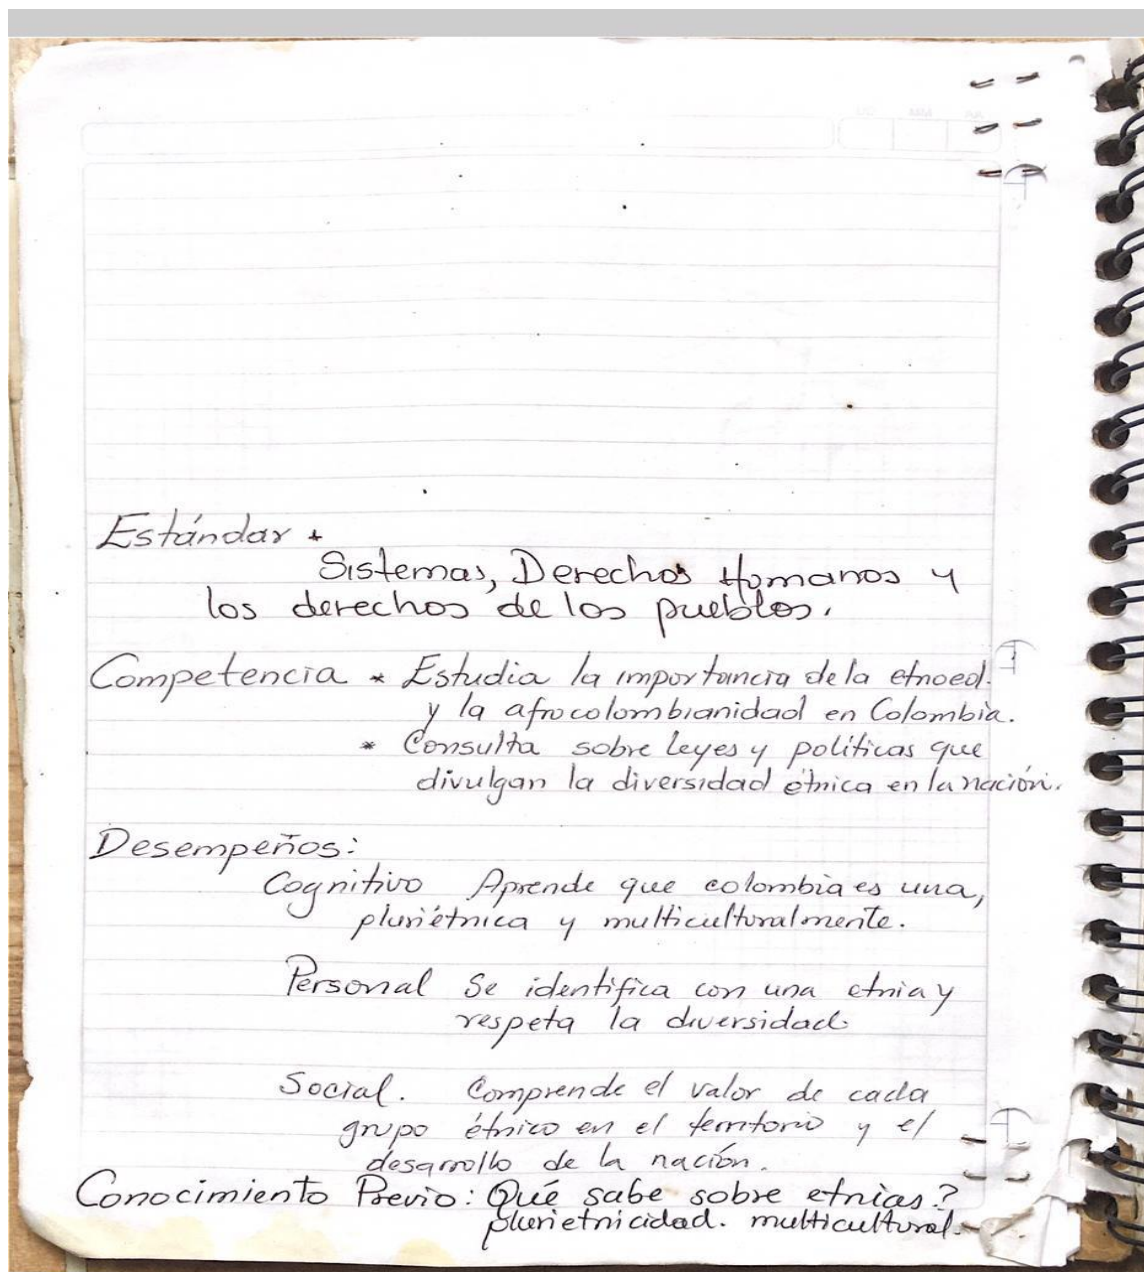 Estándar *
Sistemas, Derechos Homanos y
los derechos de los pueblos.
Competencia * Estudia la importancia de la etnoed.
y la afrocolombianidad en Colombia.
* Consulta sobre leyes y políticas que
divulgan la diversidad étnica en la nación.
Desempeños:
Cognitivo Aprende que colombia es una,
pluriétnica y multiculturalmente.
Personal Se identifica con una etnia y
respeta la diversidad
Social. Comprende el valor de cada
grupo étnico en el territorio y el
desarrollo de la nación.
Conocimiento Previo: Qué sabe sobre etnias?
plurietnicidad. multicultural.